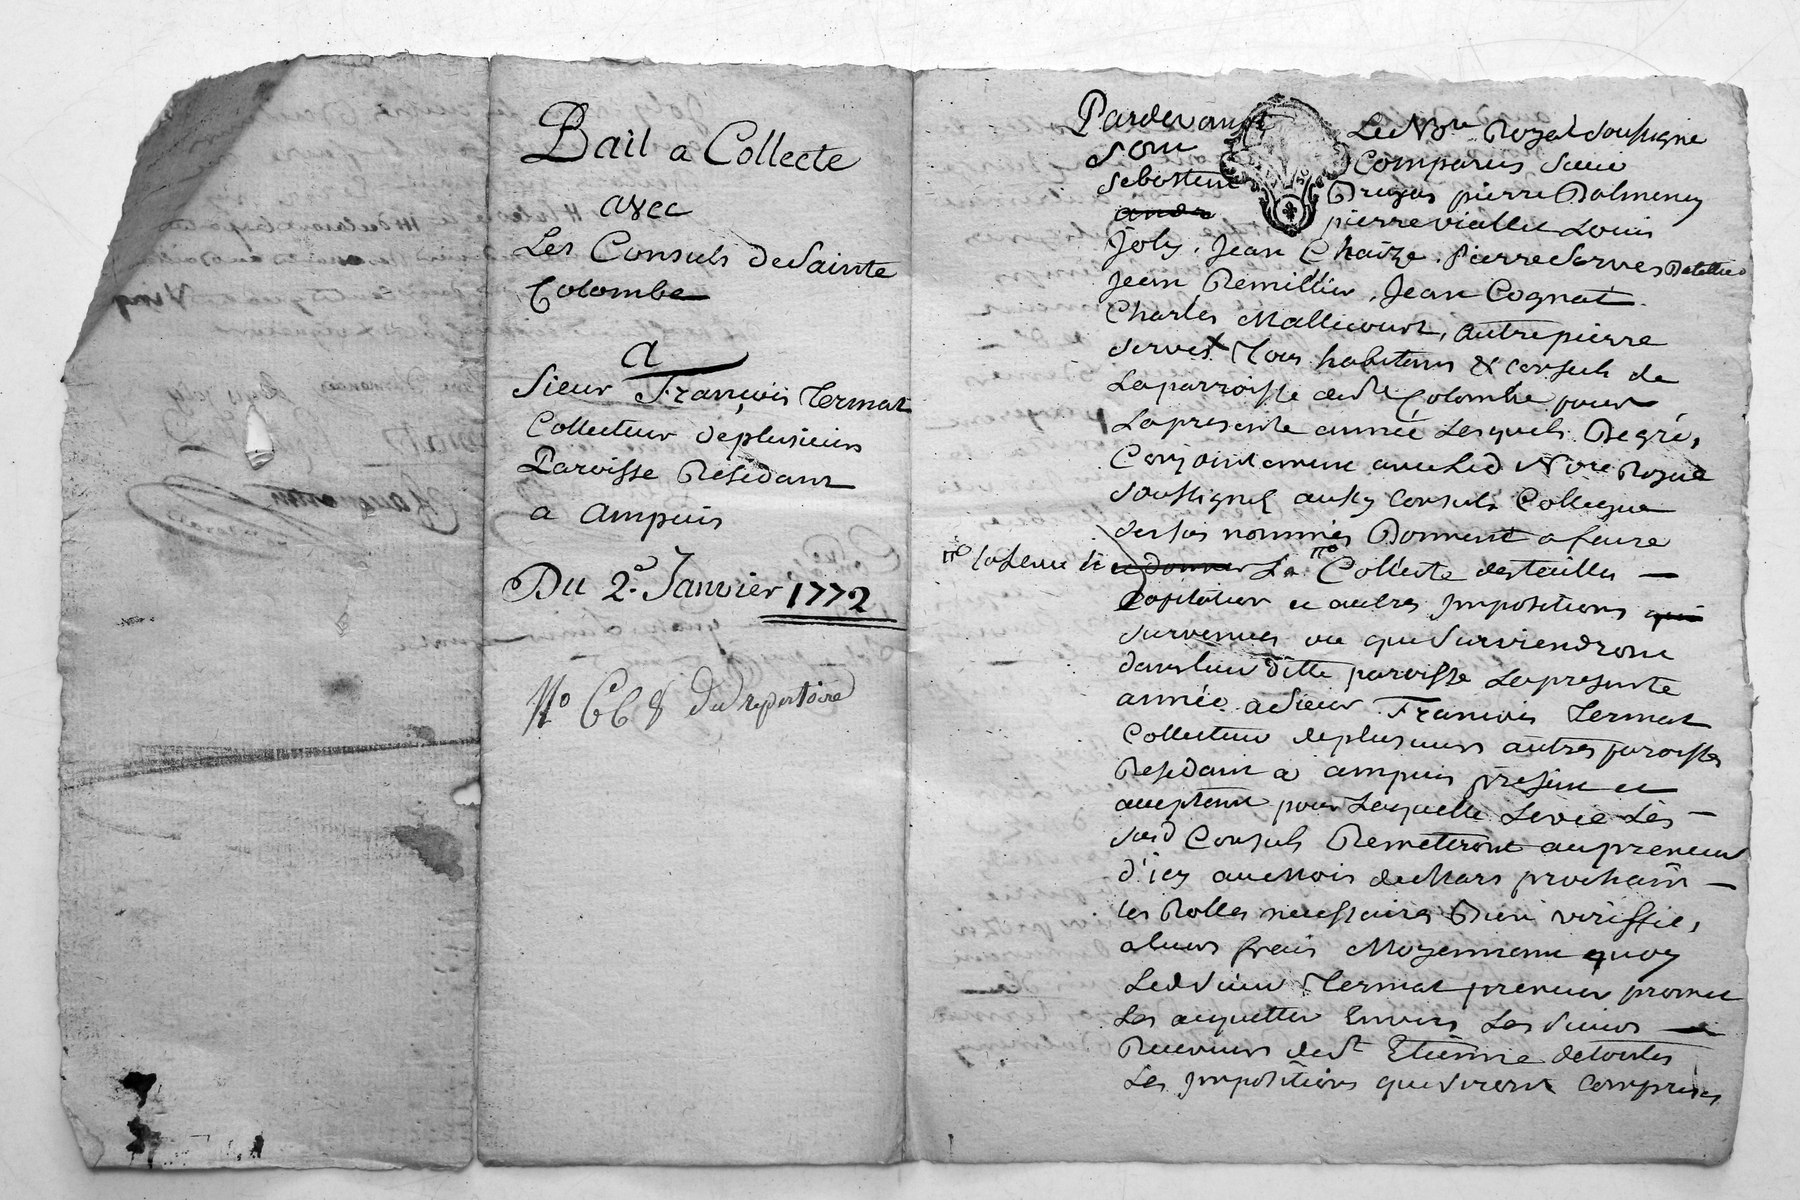 Bail a Collecte
avec
Les Consuls de Sainte
Colombe
a
Sieur François Termat
Collecteur de plusieurs
Paroisse Residant
a ampuis
Du 2e Janvier 1772
No 668 du repertoire
Pardevant Le Nore Royal soussigne
sont comparus sieur
sebastien Pierre Dalmency
pierre viallet Louis
Joly, Jean Chaize, Pierre Serves
Jean Remillier, Jean Cognat
Charles Mallicourt, autre pierre
serves Tous habitans & consuls de
La parroisse de ste Colombe pour
La presente année Lesquels De gré,
Conjointement avec Led Nore Royal
soussigné aussy consul Collegue
des sus nommés Donnent a faire
La Collecte des tailles
Capitation et autres Impositions
survenues ou que surviendront
dans leur ditte paroisse La presente
année a Sieur François Termat
Collecteur de plusieurs autres paroisses
Residant a ampuis present et
acceptant pour Laquelle Levée Les
susd Consuls Remetteront au preneur
d'icy au Mois de Mars prochain
les Rolles necessaires Bien veriffié,
a leurs frais Moyennant quoy
Led sieur Termat preneur promet
Les acquetter Envers Les sieurs
Receveurs de st Etienne de toutes
Les Impositions que seront comprises